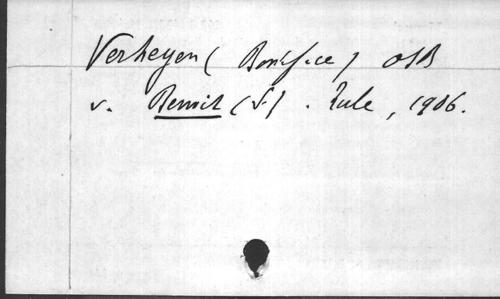 Verheyen (Boniface) OSB
v. Benoit (S.). Rule, 1906.